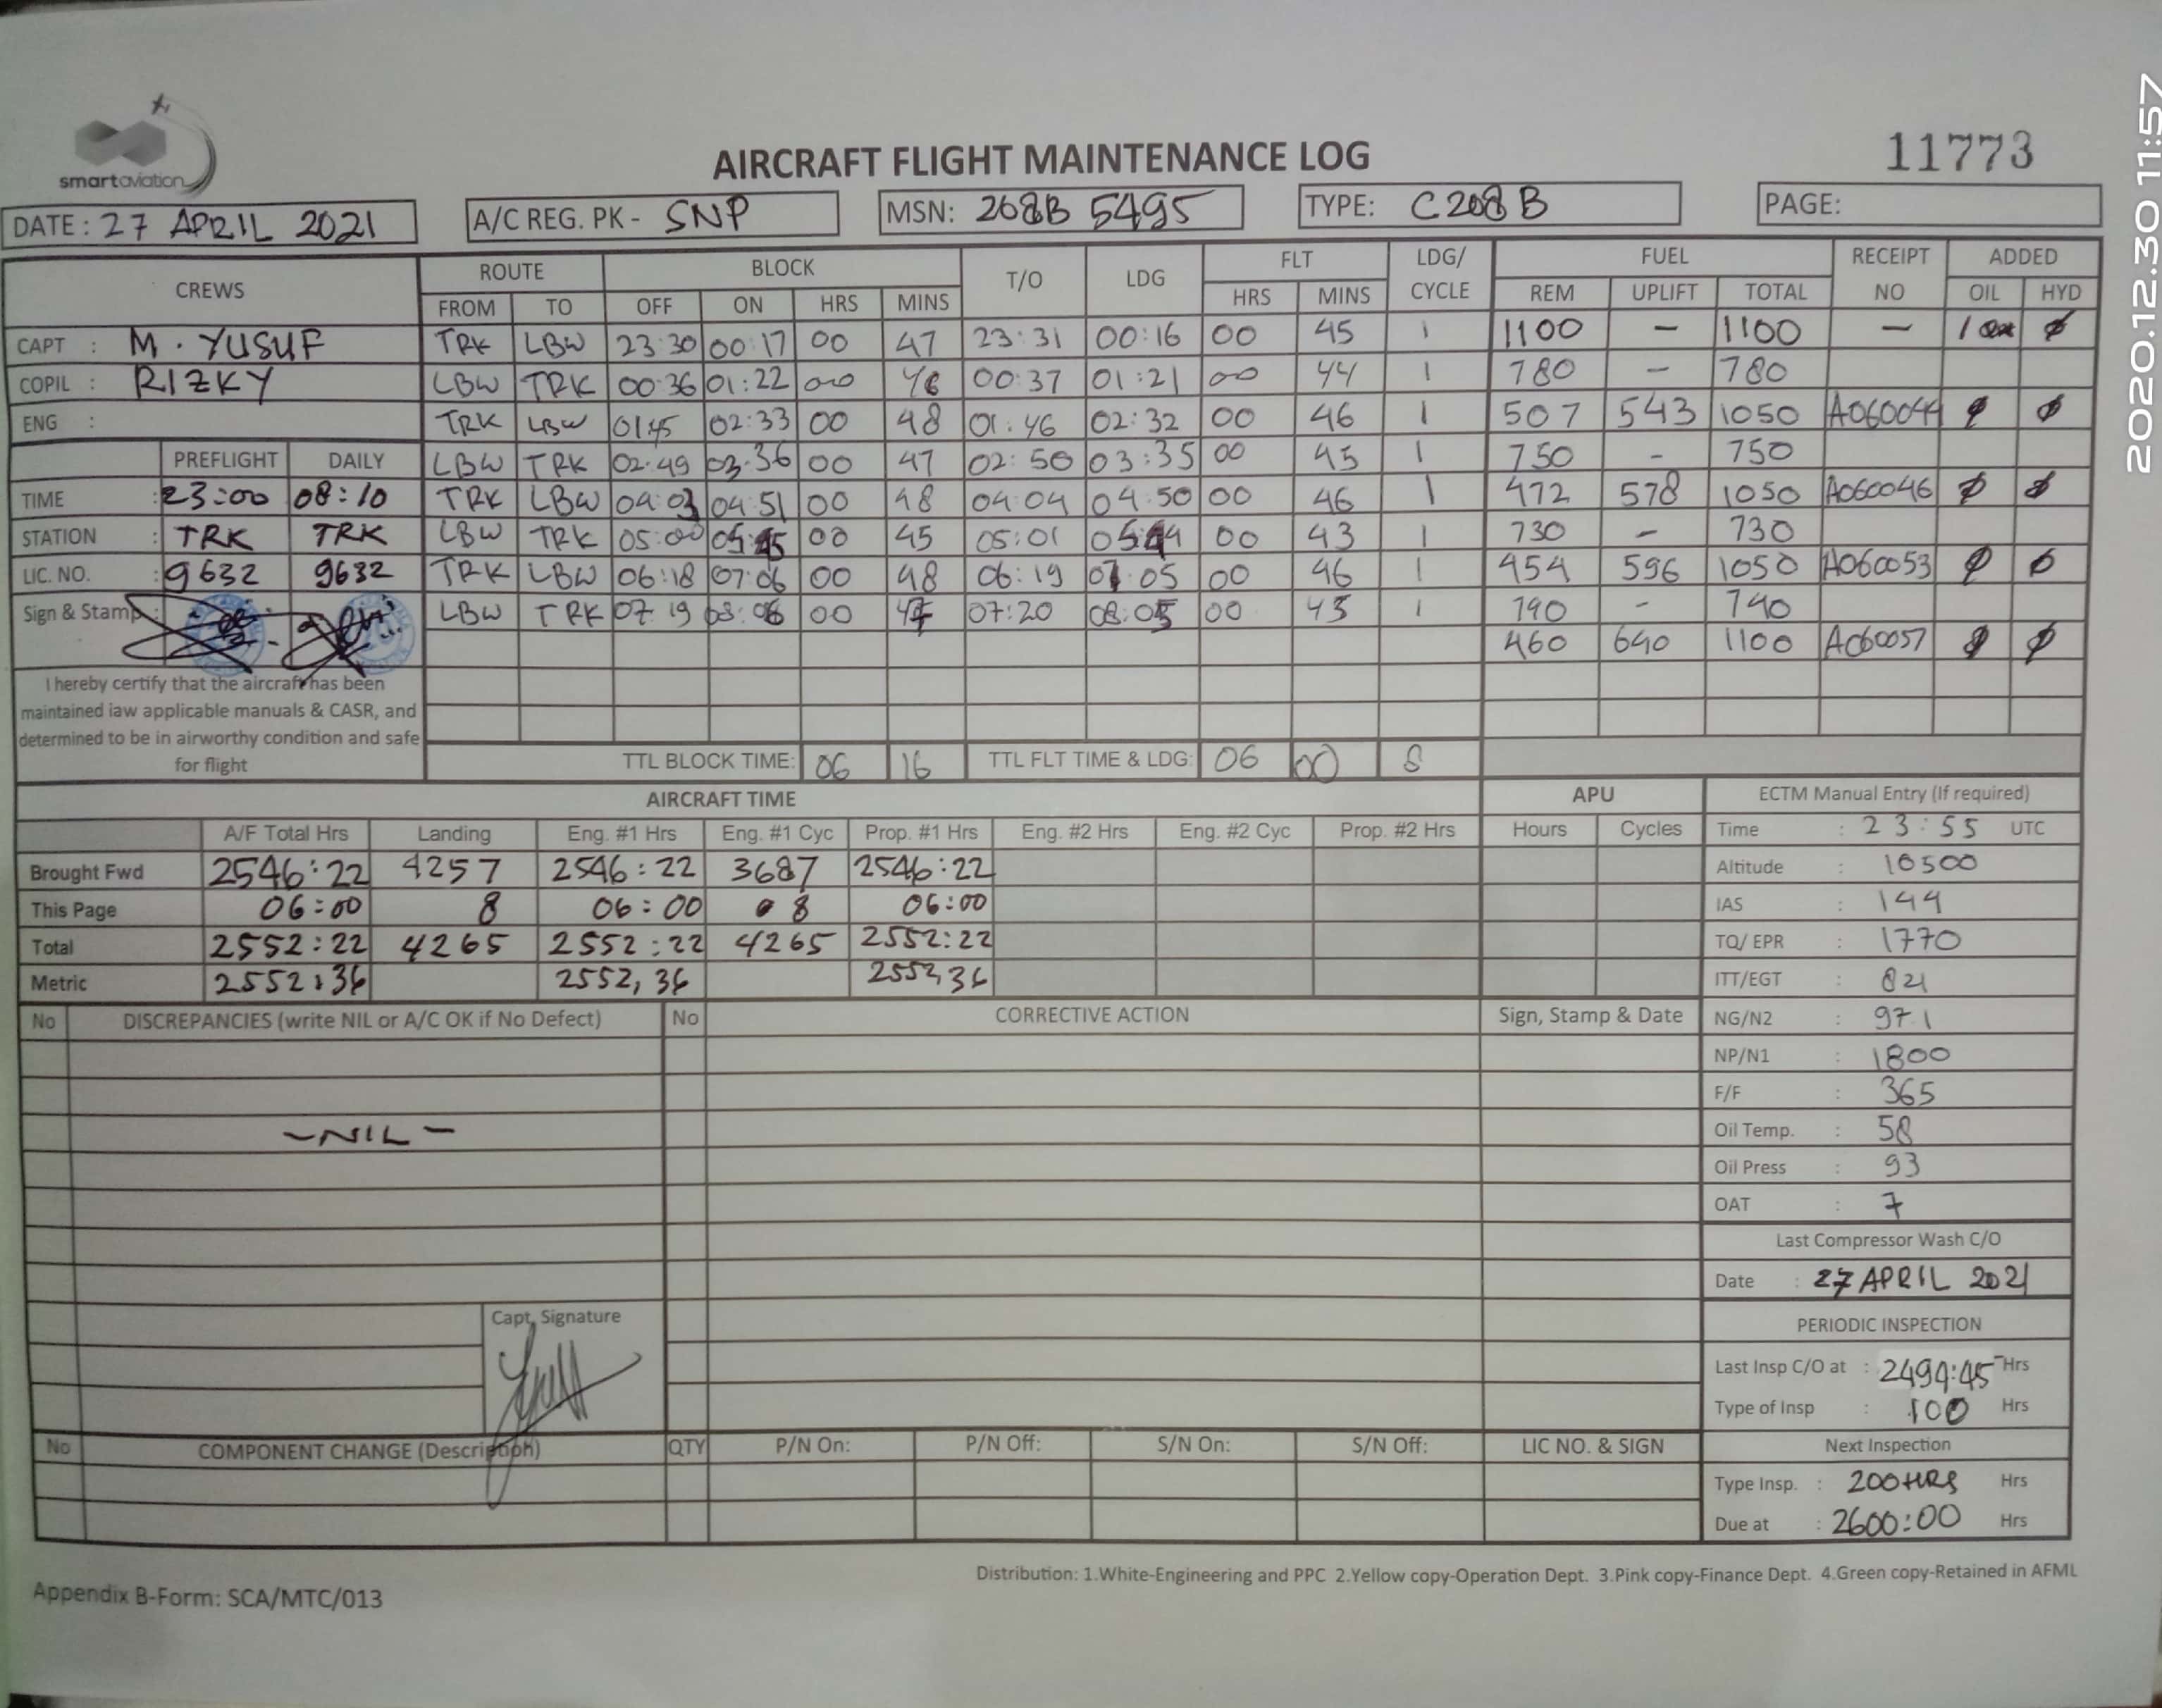 2020.12.30 11:57
smartaviation
AIRCRAFT FLIGHT MAINTENANCE LOG
11773
DATE: 27 APRIL 2021 A/C REG. PK - SNP MSN: 208B 5495 TYPE: C208B PAGE:
CREWS ROUTE BLOCK T/O LDG FLT LDG/ CYCLE FUEL RECEIPT NO ADDED
FROM TO OFF ON HRS MINS HRS MINS REM UPLIFT TOTAL OIL HYD
CAPT : M. YUSUF TRK LBW 23:30 00:17 00 47 23:31 00:16 00 45 1 1100 - 1100 - 1 ø
COPIL : RIZKY LBW TRK 00:36 01:22 00 46 00:37 01:21 00 44 1 780 - 780
ENG : TRK LBW 01:45 02:33 00 48 01:46 02:32 00 46 1 507 543 1050 A060044 ø ø
PREFLIGHT DAILY LBW TRK 02:49 03:36 00 47 02:50 03:35 00 45 1 750 - 750
TIME : 23:00 08:10 TRK LBW 04:03 04:51 00 48 04:04 04:50 00 46 1 472 578 1050 A060046 ø ø
STATION : TRK TRK LBW TRK 05:00 05:45 00 45 05:01 05:44 00 43 1 730 - 730
LIC. NO. : 9632 9632 TRK LBW 06:18 07:06 00 48 06:19 07:05 00 46 1 454 596 1050 A060053 ø ø
Sign & Stamp : LBW TRK 07:19 08:06 00 47 07:20 08:05 00 45 1 740 - 740
460 640 1100 A060057 ø ø
I hereby certify that the aircraft has been
maintained iaw applicable manuals & CASR, and
determined to be in airworthy condition and safe
for flight
TTL BLOCK TIME: 06 16 TTL FLT TIME & LDG: 06 00 8
AIRCRAFT TIME APU ECTM Manual Entry (If required)
A/F Total Hrs Landing Eng. #1 Hrs Eng. #1 Cyc Prop. #1 Hrs Eng. #2 Hrs Eng. #2 Cyc Prop. #2 Hrs Hours Cycles Time : 23:55 UTC
Brought Fwd 2546:22 4257 2546:22 3687 2546:22 Altitude : 10500
This Page 06:00 8 06:00 8 06:00 IAS : 144
Total 2552:22 4265 2552:22 4265 2552:22 TQ/ EPR : 1770
Metric 2552,36 2552,36 2552,36 ITT/EGT : 621
No DISCREPANCIES (write NIL or A/C OK if No Defect) No CORRECTIVE ACTION Sign, Stamp & Date NG/N2 : 97 1
NP/N1 : 1800
F/F : 365
- NIL - Oil Temp. : 58
Oil Press : 93
OAT : 7
Last Compressor Wash C/O
Date : 27 APRIL 2021
Capt. Signature
PERIODIC INSPECTION
Last Insp C/O at : 2494:45 Hrs
Type of Insp : 100 Hrs
No COMPONENT CHANGE (Description) QTY P/N On: P/N Off: S/N On: S/N Off: LIC NO. & SIGN Next Inspection
Type Insp. : 200HRS Hrs
Due at : 2600:00 Hrs
Distribution: 1.White-Engineering and PPC 2.Yellow copy-Operation Dept. 3.Pink copy-Finance Dept. 4.Green copy-Retained in AFML
Appendix B-Form: SCA/MTC/013